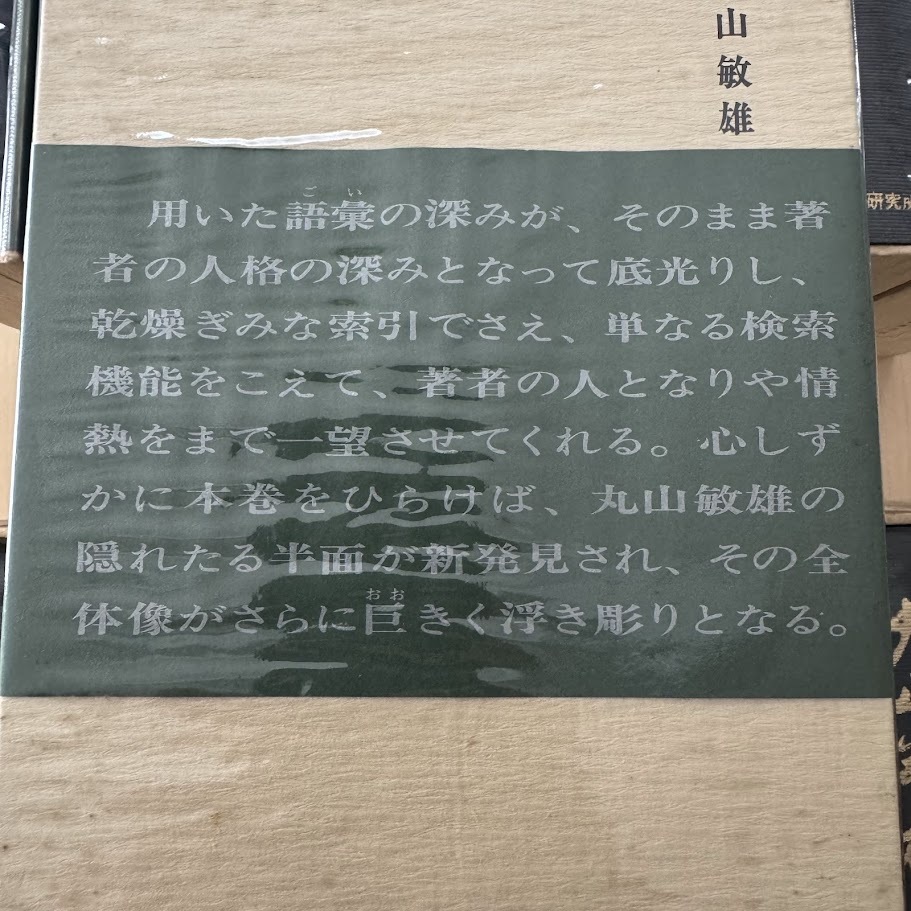 山敏雄
用いた語彙の深みが、そのまま著
者の人格の深みとなって底光りし、
乾燥ぎみな索引でさえ、単なる検索
機能をこえて、著者の人となりや情
熱をまで一望させてくれる。心しず
かに本巻をひらけば、丸山敏雄の
隠れたる半面が新発見され、その全
体像がさらに巨きく浮き彫りとなる。
ごい
おお
研究所